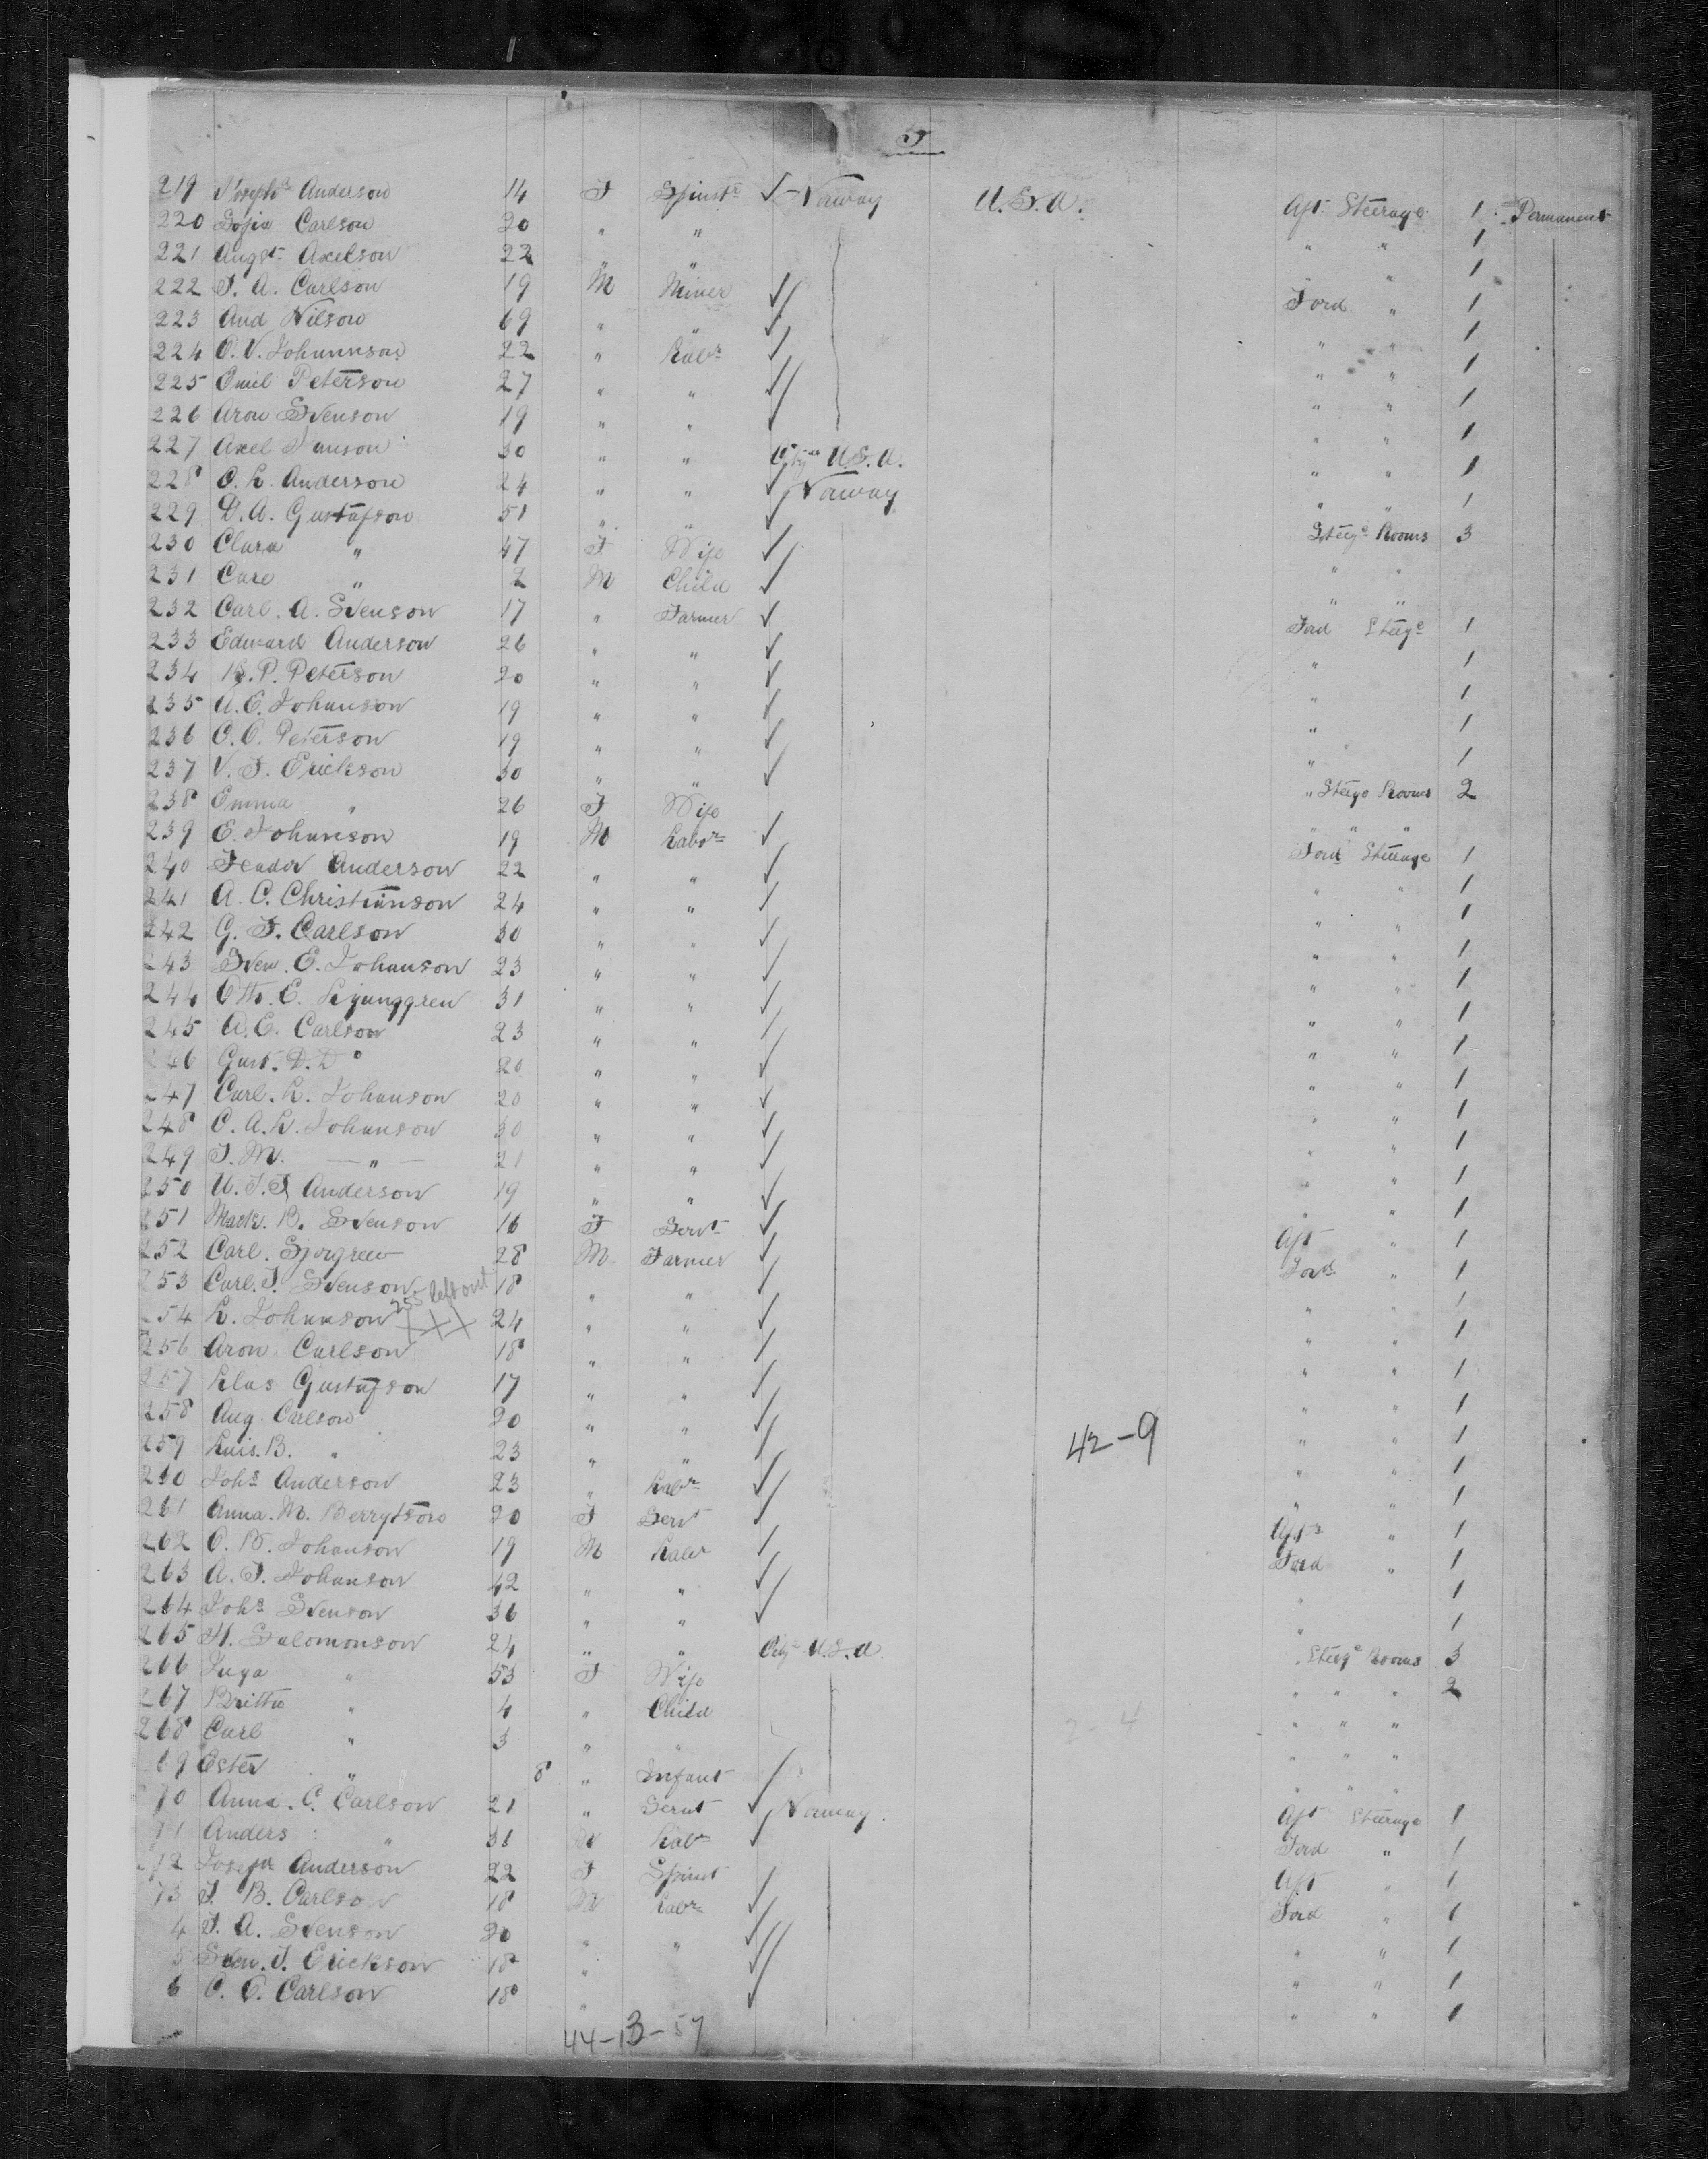 5
219 Joseph^a Anderson 14 F Spinst^r ✓ Norway U.S.A. Aft Steerage 1 Permanent
220 Sofia Carlson 20 " " " " 1
221 Aug^st Axelson 22 " " " " 1
222 J. A. Carlson 19 M Miner ✓ Ford " 1
223 Aud Nilson 69 " " ✓ " " 1
224 O. V. Johannson 22 " Lab^r ✓ " " 1
225 Emil Peterson 27 " " ✓ " " 1
226 Aron Svenson 19 " " ✓ " " 1
227 Axel Janson 30 " " U.S.A. " " 1
228 O. L. Anderson 24 " " ✓ Norway " " 1
229 D. A. Gustafson 51 " " ✓ Steeg^e Rooms 3
230 Clara " 47 F Wife ✓ " "
231 Carl " 2 M Child ✓ " "
232 Carl. A. Svenson 17 " Farmer ✓ Ford Steeg^e 1
233 Edward Anderson 26 " " ✓ " 1
234 B. P. Peterson 20 " " ✓ " 1
235 A. E. Johanson 19 " " ✓ " 1
236 O. O. Peterson 19 " " ✓ " 1
237 V. F. Erickson 30 " " ✓ " Steege Rooms 2
238 Emma " 26 F Wife " " "
239 E. Johanson 19 M Labor ✓ Ford Steerage 1
240 Anderson 22 " " ✓ " " 1
241 A. C. Christianson 24 " " ✓ " " 1
242 G. F. Carlson 30 " " ✓ " " 1
243 Sven. E. Johanson 23 " " ✓ " " 1
244 Otto. E. Ljunggren 31 " " ✓ " " 1
245 A. E. Carlson 23 " " ✓ " " 1
246 Gust. D. D^o 20 " " ✓ " " 1
247 Carl. L. Johanson 20 " " ✓ " " 1
248 C. A. L. Johanson 30 " " ✓ " " 1
249 J. M. — " — 21 " " ✓ " " 1
250 A. J. F. Anderson 19 " " ✓ " " 1
251 B. Svenson 16 F Serv^t ✓ Aft " 1
252 Carl. Sjorgren 28 M Farmer ✓ Ford " 1
253 Carl. J. Svenson 18 " " ✓ " " 1
255 left out
254 L. Johanson XXX 24 " " ✓ " " 1
256 Aron. Carlson 18 " " ✓ " " 1
257 Klas Gustafson 17 " " ✓ " " 1
258 Aug. Carlson 20 " " ✓ " " 1
42-9
259 Luis. B. " 23 " " ✓ " " 1
260 Joh^s Anderson 23 " Lab^r ✓ " " 1
261 Anna. M. Berrytson 20 F Serv^t ✓ Aft " 1
262 O. B. Johanson 19 M Labr ✓ Ford " 1
263 A. J. Johanson 42 " " ✓ " 1
264 Joh^s Svenson 36 " " ✓ " 1
265 H. Salomonson 24 " " U.S.A. " Steeg^e Rooms 3
266 Inga " 53 F Wife " " " 2
267 Britta " 4 " Child " " "
2-4
268 Carl " 3 " " " " "
69 Ester " 8 " Infant ✓ " " "
70 Anna. C. Carlson 21 " Servt ✓ Norway. Aft Steerage 1
71 Anders " 31 M Lab^r ✓ Ford " 1
72 Anderson 22 F Spinst ✓ Aft " 1
73 J. B. Carlson 18 M Lab^r ✓ Ford " 1
4 J. A. Svenson 20 " " ✓ " " 1
5 Sven. J. Erickson 18 " ✓ " " 1
6 C. O. Carlson 18 " ✓ " " 1
44-13-57